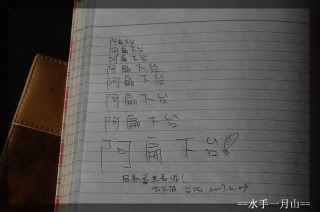 阿扁下台
阿扁下台
阿扁下台
阿扁下台
阿扁下台
阿扁下台
阿扁下台
阿扁下台
==水手一月山==